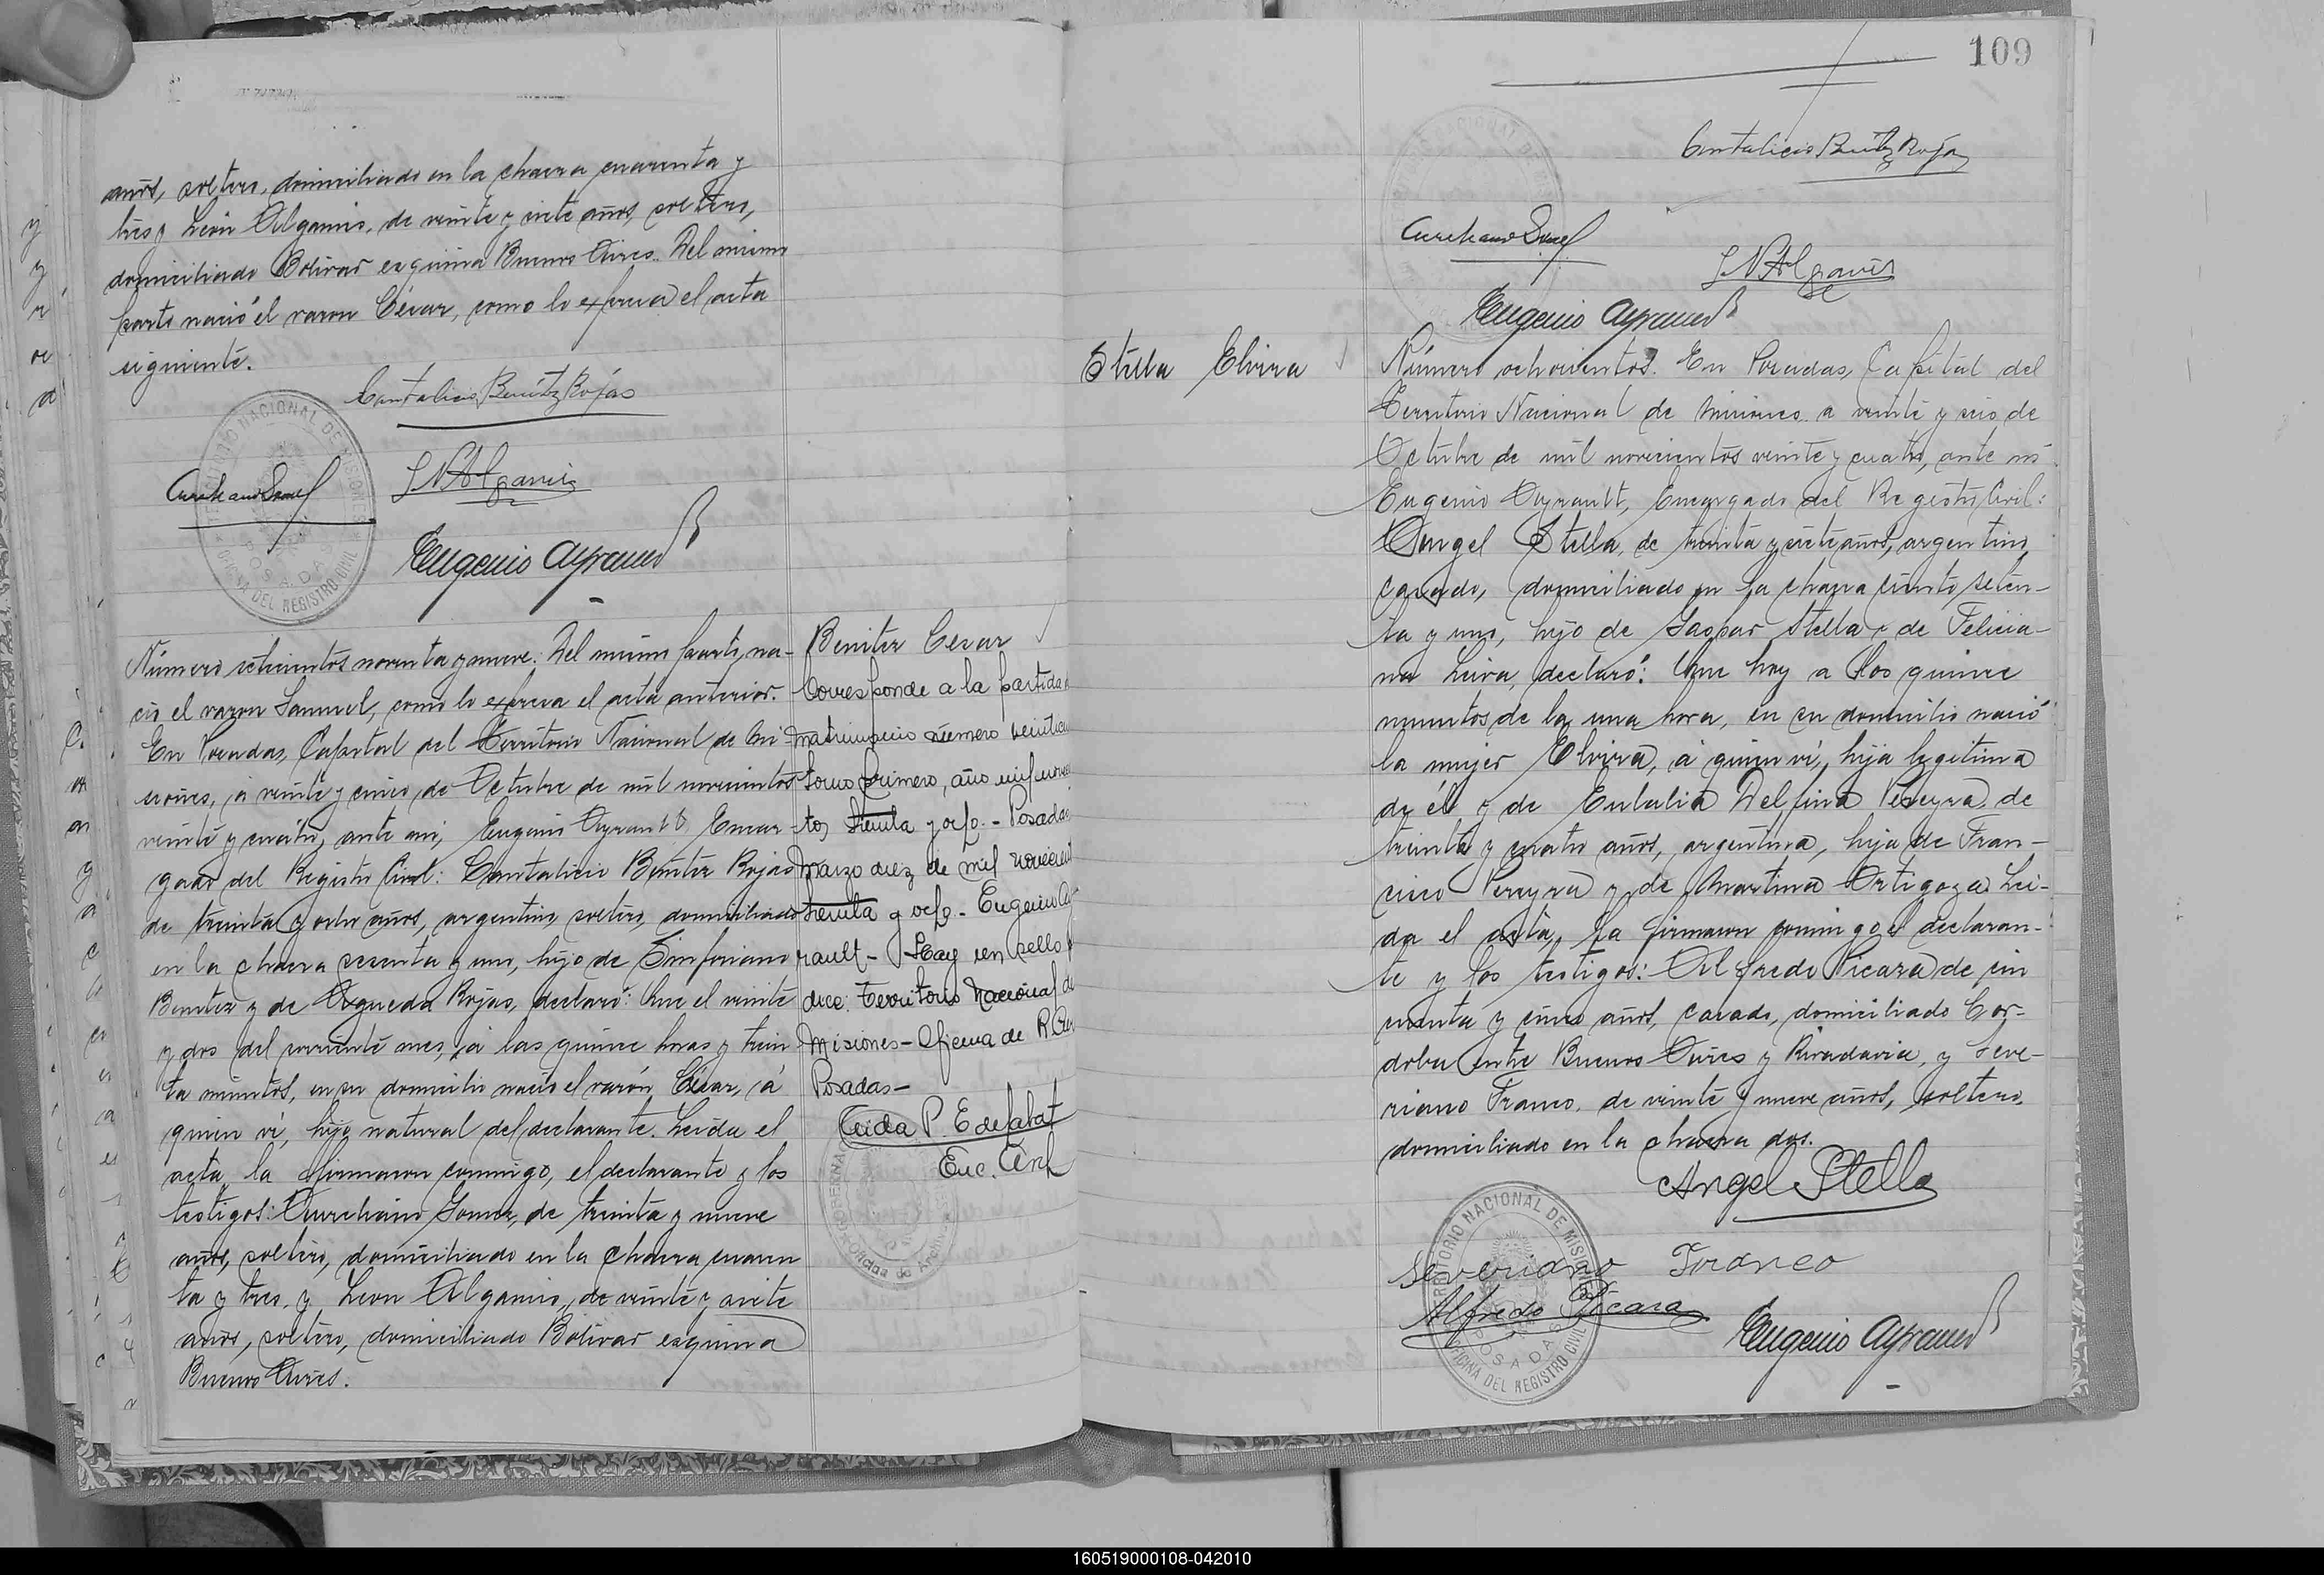 años, soltero, domiciliado en la chacra cuarenta y
tres y León Algamis, de veinte y siete años, soltero,
domiciliado Bolivar esquina Buenos Aires. Del mismo
parto nació el varon César, como lo expresa el acta
siguiente.
Cantalicio Benítez Rojas
TERRITORIO NACIONAL DE MISIONES
POSADAS
OFICINA DEL REGISTRO CIVIL
Eugenio Ayrault
Número setecientos noventa y nueve: Del mismo parto, na-
ció el varon Samuel, como lo expresa el acta anterior.
En Posadas, Capital del Territorio Nacional de Mi-
siones, á veinte y cinco de Octubre de mil novecientos
veinte y cuatro, ante mi, Eugenio Ayrault, Encar-
gado del Registro Civil: Cantalicio Benítez Rojas
de treinta y ocho años, argentino, soltero, domiciliado
en la chacra sesenta y uno, hijo de Sinforiano
Benítez y de Agueda Rojas, declaró: Que el veinte
y dos del corriente mes, á las quince horas y trein
ta minutos, en su domicilio nació el varón César, á
quien ví, hijo natural del declarante. Leída el
acta, la firmaron conmigo, el declarante y los
testigos: Aureliano Gomez, de treinta y nueve
años, soltero, domiciliado en la chacra cuaren
ta y tres, y Leon Algamis, de veinte y siete
años, soltero, domiciliado Bolivar esquina
Buenos Aires.
Benitez Cesar
Corresponde a la partida
matrimonio número
tomo primero, año mil nove
tos treinta y ocho.- Posadas
marzo diez de mil novecient
treinta y ocho.- Eugenio Ay
rault - Hay un sello
dice: Territorio Nacional de
Misiones - Oficina de R. Civ
Posadas -
109
Cantalicio Benítez Rojas
Eugenio Ayrault
Stella Elvira
Número ochocientos. En Posadas, Capital del
Territorio Nacional de Misiones, a veinte y seis de
Octubre de mil novecientos veinte y cuatro, ante mi
Eugenio Ayrault, Encargado del Registro Civil:
Angel Stella, de treinta y siete años, argentino,
casado, domiciliado en la chacra ciento seten-
ta y uno, hijo de Gaspar Stella y de Felicia-
na Leiva, declaró: Que hoy a las quince
minutos de la una hora, en su domicilio nació
la mujer Elvira, á quien ví, hija legitima
de él y de Eulalia Delfina Pereyra, de
treinta y cuatro años, argentina, hija de Fran-
cisco Pereyra y de Martina Ortigoza. Lei-
da el acta, la firmaron conmigo el declaran-
te y los testigos: Alfredo Picaza de cin
cuenta y cinco años, casado, domiciliado Cor-
doba entre Buenos Aires y Rivadavia, y Seve-
riano Franco, de veinte y nueve años, soltero,
domiciliado en la chacra dos.
Angel Stella
TERRITORIO NACIONAL DE MISIONES
Severiano Franco
Alfredo Picaza
POSADAS
OFICINA DEL REGISTRO CIVIL
Eugenio Ayrault
160519000108-042010